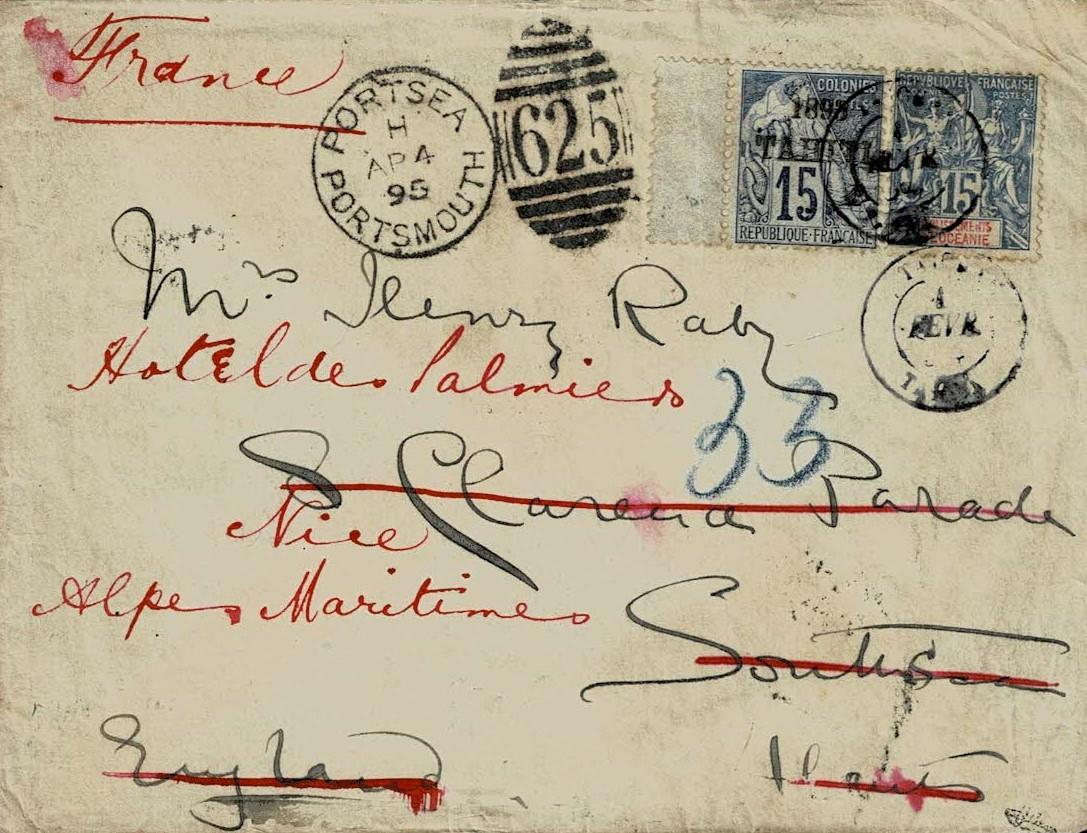 France
PORTSEA
H
AP 4
95
PORTSMOUTH
625
COLONIES
1893
TAHITI
15
REPUBLIQUE·FRANÇAISE
REPUBLIQUE FRANÇAISE
POSTES
15
OCÉANIE
FEVR
Mrs Henry Raby
Hotel des Palmiers
33
8 Clarence Parade
Nice
Alpes Maritimes
Southsea
England
Hants